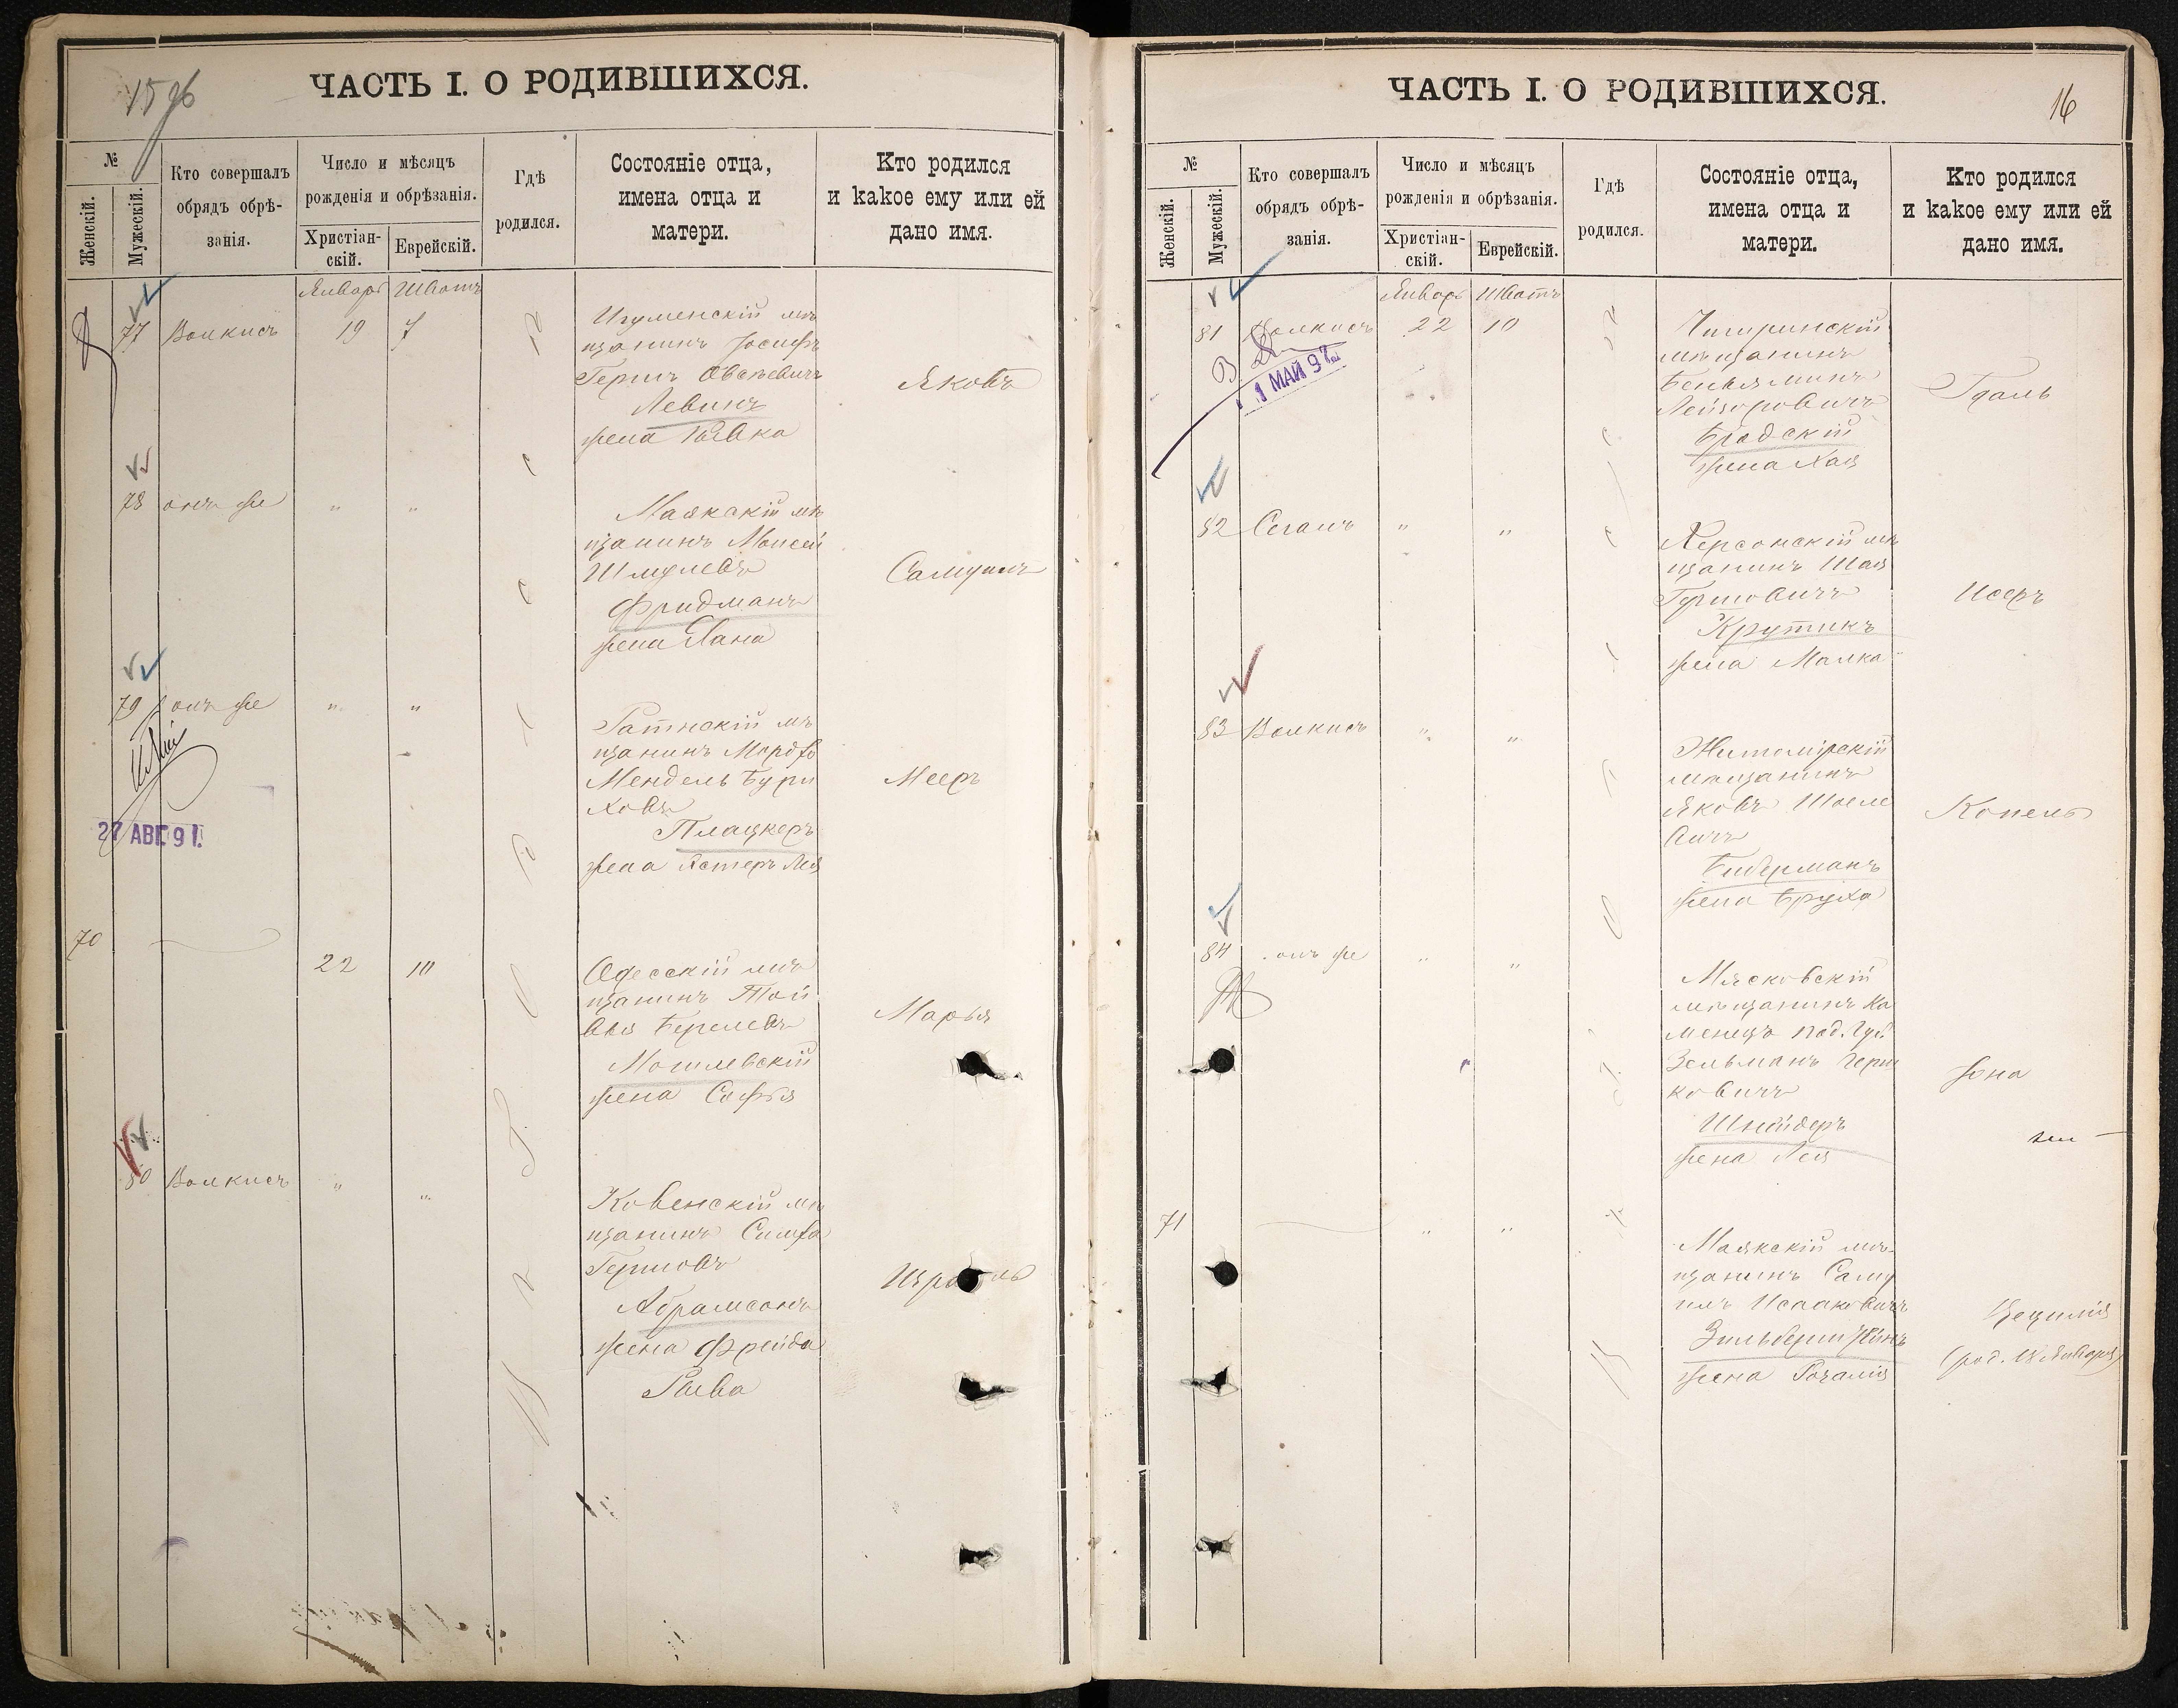 15 об
ЧАСТЬ I. О РОДИВШИХСЯ.
№
Женскій.
Мужескій.
Кто совершалъ
обрядъ обрѣ-
занія.
Число и мѣсяцъ
рожденія и обрѣзанія.
Христіан-
скій.
Еврейскій.
Гдѣ
родился.
Состояніе отца,
имена отца и
матери.
Кто родился
и какое ему или ей
дано имя.
Январь Шватъ
77 Волкисъ 19 7
Игуменскій мѣ
щанинъ Іосифъ
Гершъ Овсѣевичъ
Левинъ
жена Ривка
Яковъ
78 онъ же " "
Маякскій мѣ
щанинъ Моисей
Шмулевъ
Фридманъ
жена Хана
Самуилъ
79 онъ же " "
27 АВГ. 91.
Ратнскій мѣ
щанинъ Мордхо
Мендель Бури
ховъ
Плацкеръ
жена Эстеръ Лея
Мееръ
70 22 10
Одесскій мѣ
щанинъ Той
вья Берелевъ
Могилевскій
жена Софья
Марья
80 Волкисъ " "
Ковенскій мѣ
щанинъ Симха
Гершовъ
Абрамсонъ
жена Фрейда
Рива
Израиль
ЧАСТЬ I. О РОДИВШИХСЯ.
16
№
Женскій.
Мужескій.
Кто совершалъ
обрядъ обрѣ-
занія.
Число и мѣсяцъ
рожденія и обрѣзанія.
Христіан-
скій.
Еврейскій.
Гдѣ
родился.
Состояніе отца,
имена отца и
матери.
Кто родился
и какое ему или ей
дано имя.
Январь Шватъ
81 Волкисъ 22 10
1 МАЙ 97
Чигиринскій
мѣщанинъ
Беньяминъ
Лейзоровичъ
Бродскій
жена Хая
Гдаль
82 Сеганъ " "
Херсонскій мѣ
щанинъ Шая
Гершовичъ
Крутикъ
жена Малка
Исеръ
83 Волкисъ " "
Житомірскій
мѣщанинъ
Яковъ Шоеле
вичъ
Биберманъ
жена Бруха
Копель
84 онъ же " "
Мясковскій
мѣщанинъ Ка
менецъ Под. Губ.
Зельманъ Герш
ковичъ
Шнайдеръ
жена Лея
Іона
71 " "
Маякскій мѣ
щанинъ Саму
илъ Исааковичъ
Зильберштейнъ
жена Розалія
Цецилія
(род. 18 Января)